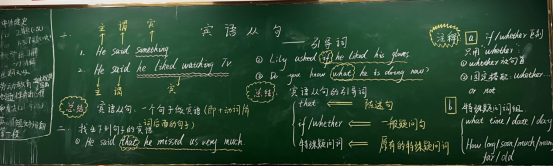 宾语从句
——引导词
一、
主 谓 宾
1. He said something
2. He said he liked watching TV.
宾
总结 宾语从句:一个句子做宾语(即+动词/介词后面的句子)
二、找出下列句子的宾语
① He said that he missed us very much.
① Lily asked if he liked his gloves
② Do you know what he is doing now?
总结 宾语从句的引导词
that ⇐ 陈述句
if/whether ⇐ 一般疑问句
特殊疑问词 ⇐ 原有的特殊疑问词
注释 a if/whether 区别
只用 whether
① whether 放句首
② 固定搭配: whether
or not
b 特殊疑问词组
what time / date / day
How long/soon/much/many
far/old